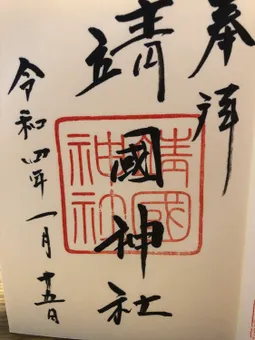 奉拝
靖國神社
靖國
神社
令和四年一月十五日